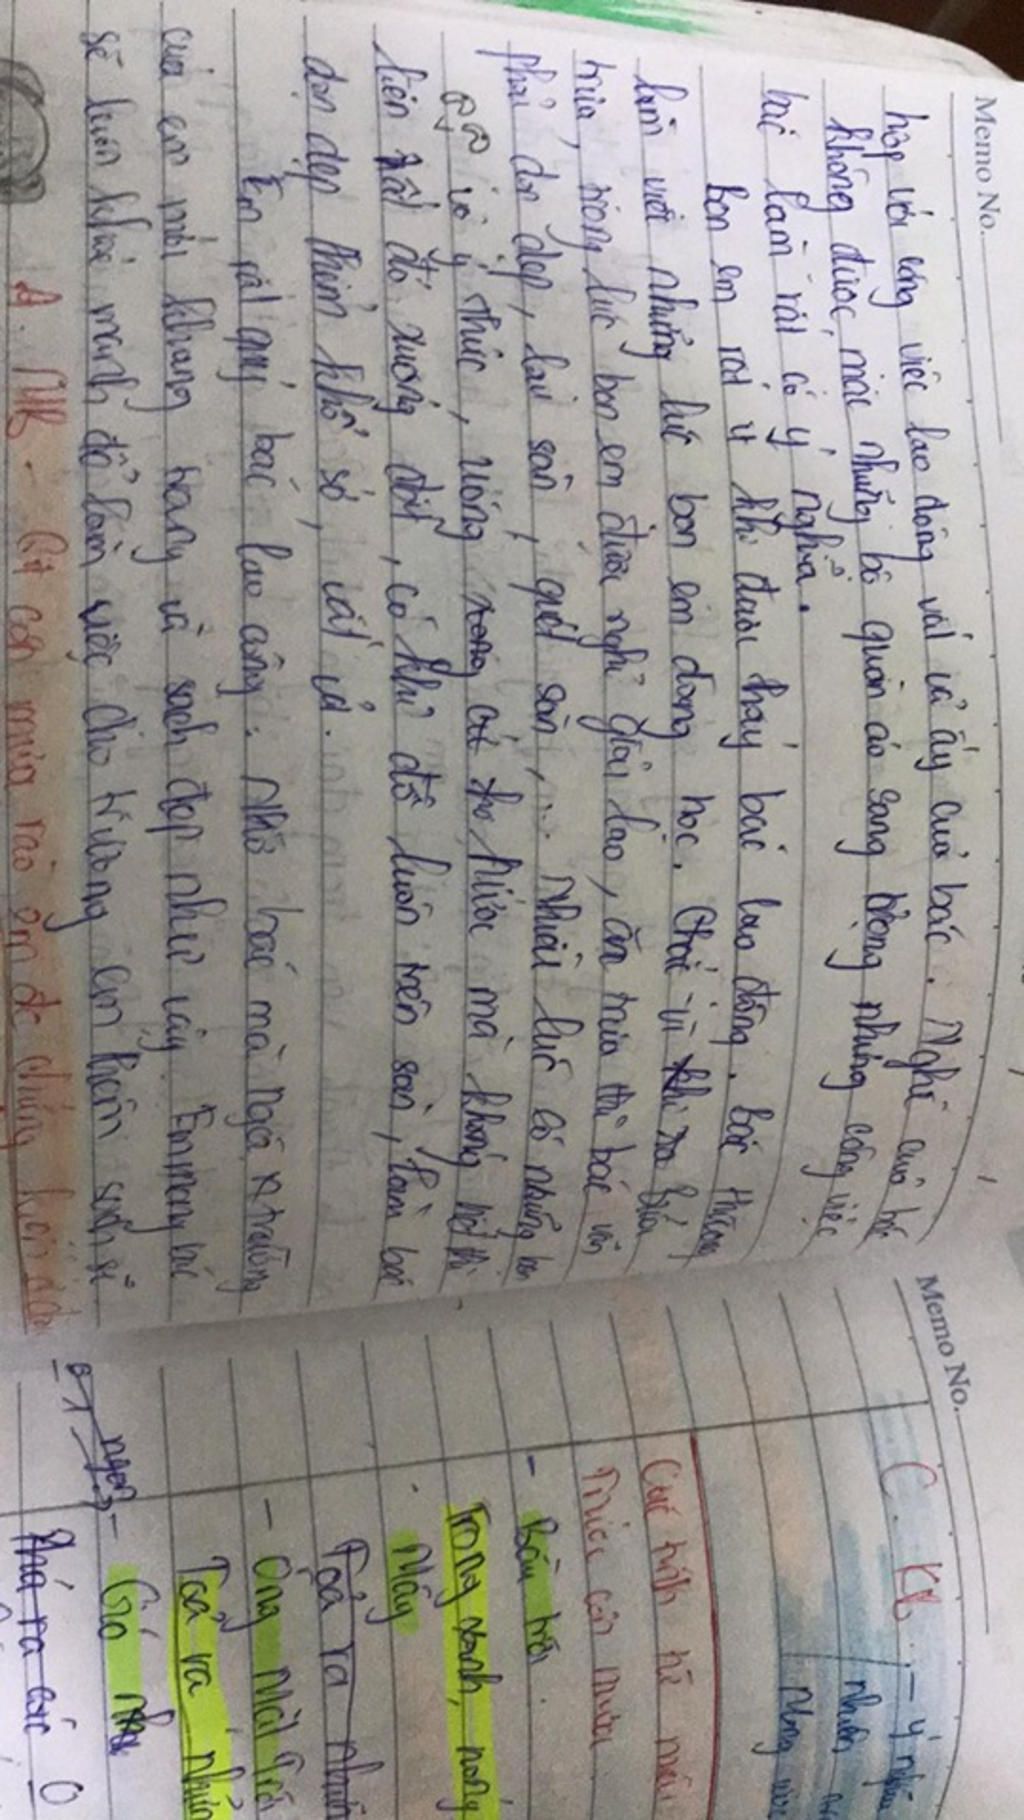 Memo No.
hợp với công việc lao động vất vả ấy của bác. Nghề của bác
không được mặc những bộ quần áo sang trọng nhưng công việc
bác làm rất có ý nghĩa.
Bọn em rất ít khi được thấy bác lao động. Bác thường
làm việc những lúc bọn em đang học. Chắc vì
trưa, trong lúc bọn em được nghỉ giải lao, ăn trưa thì bác vẫn
phải dọn dẹp, lau sàn, quét sàn,... Nhiều lúc có những bạn
vô ý thức, uống cho nước mà không hết thì
liền đổ xuống đất, có khi đổ luôn trên sàn, làm bác
dọn dẹp thêm khổ sở, vất vả.
Em rất quý bác lao công. Nhờ bác mà ngôi trường
của em mới khang trang và sạch đẹp như vậy. Em mong bác
sẽ luôn khoẻ mạnh để làm việc cho trường em thêm
A. MB - cơn mưa rào
Memo No.
C. KB - ý nghĩa
Trước cơn mưa
- Bầu trời
Trong xanh,
- Mây
Toả ra
- Ông Mặt Trời
Toả ra
- Gió